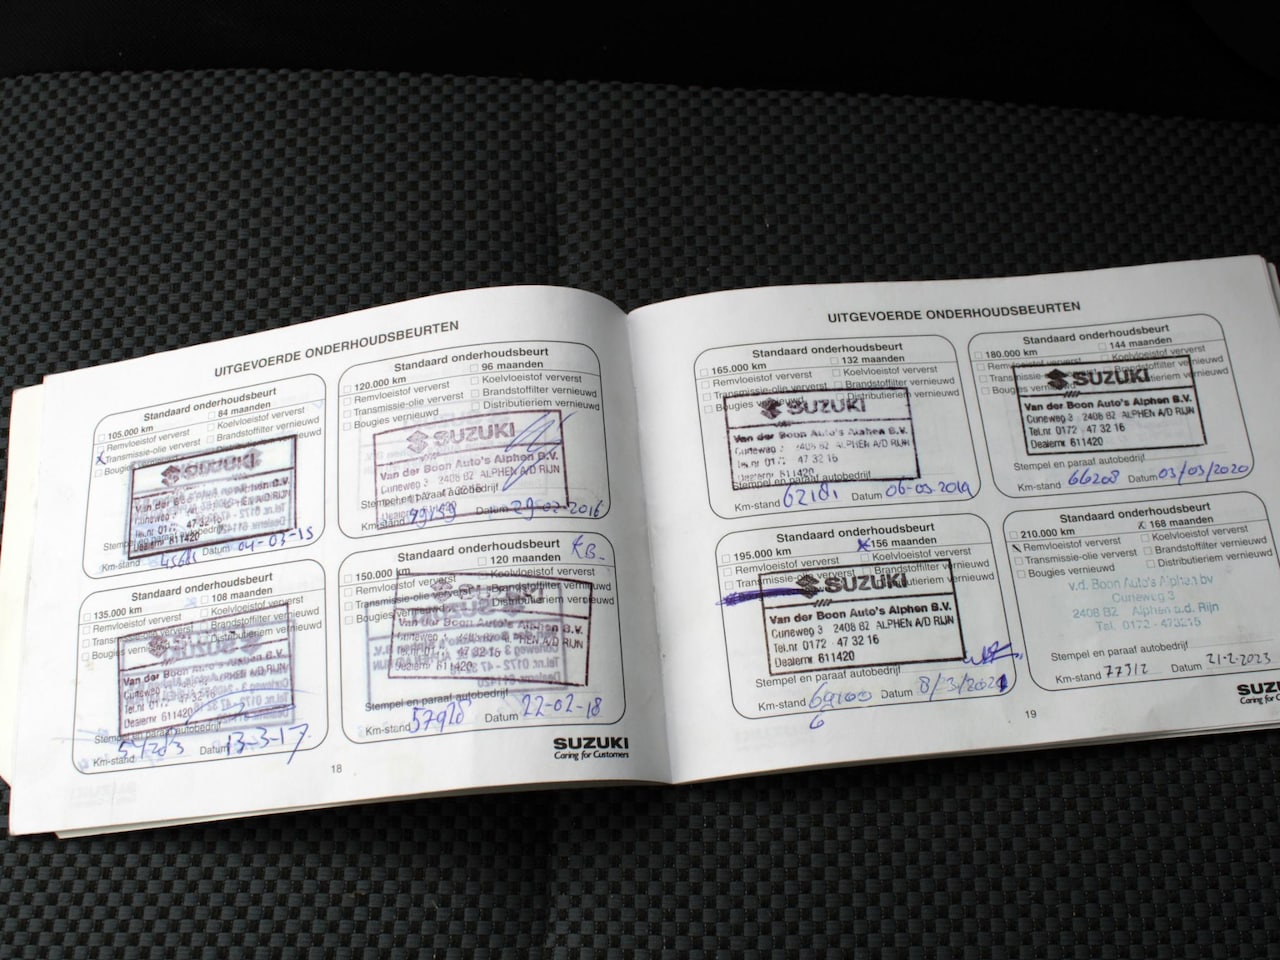 UITGEVOERDE ONDERHOUDSBEURTEN
Standaard onderhoudsbeurt
105.000 km 84 maanden
Remvloeistof ververst Koelvloeistof ververst
Transmissie-olie ververst Brandstoffilter vernieuwd
Bougies Distributieriem vernieuwd
SUZUKI
Van der Boon Auto's Alphen B.V.
Cuneweg 3 2408 BZ ALPHEN A/D RIJN
Tel.nr 0172 - 47 32 16
Dealernr 611420
Stempel en paraaf autobedrijf
Km-stand Datum 04-03-15
Standaard onderhoudsbeurt
120.000 km 96 maanden
Remvloeistof ververst Koelvloeistof ververst
Transmissie-olie ververst Brandstoffilter vernieuwd
Bougies vernieuwd Distributieriem vernieuwd
SUZUKI
Van der Boon Auto's Alphen B.V.
Cuneweg 3 2408 BZ ALPHEN A/D RIJN
Tel.nr 0172 - 47 32 16
Stempel en paraaf autobedrijf
Km-stand Datum 29-02-2016
Standaard onderhoudsbeurt
135.000 km 108 maanden
Remvloeistof ververst Koelvloeistof ververst
Transmissie-olie ververst Brandstoffilter vernieuwd
Bougies Distributieriem vernieuwd
Van der Boon Auto's Alphen B.V.
Cuneweg 3 2408 BZ ALPHEN A/D RIJN
Tel.nr 0172 - 47 32 16
Dealernr 611420
Stempel en paraaf autobedrijf
Km-stand Datum 13-3-17
Standaard onderhoudsbeurt
150.000 km 120 maanden
Remvloeistof ververst Koelvloeistof ververst
Transmissie-olie ververst Brandstoffilter vernieuwd
Bougies vernieuwd Distributieriem vernieuwd
SUZUKI
Van der Boon Auto's Alphen B.V.
Cuneweg 3 2408 BZ ALPHEN A/D RIJN
Tel.nr 0172 - 47 32 16
Dealernr 611420
Stempel en paraaf autobedrijf
Km-stand Datum 22-02-18
SUZUKI
Caring for Customers
18
UITGEVOERDE ONDERHOUDSBEURTEN
Standaard onderhoudsbeurt
165.000 km 132 maanden
Remvloeistof ververst Koelvloeistof ververst
Transmissie-olie ververst Brandstoffilter vernieuwd
Bougies vernieuwd Distributieriem vernieuwd
SUZUKI
Van der Boon Auto's Alphen B.V.
Cuneweg 3 2408 BZ ALPHEN A/D RIJN
Tel.nr 0172 - 47 32 16
Dealernr 611420
Stempel en paraaf autobedrijf
Km-stand 62181 Datum 06-03-2019
Standaard onderhoudsbeurt
180.000 km 144 maanden
Remvloeistof ververst Koelvloeistof ververst
Transmissie-olie ververst Brandstoffilter vernieuwd
Bougies vernieuwd Distributieriem vernieuwd
SUZUKI
Van der Boon Auto's Alphen B.V.
Cuneweg 3 2408 BZ ALPHEN A/D RIJN
Tel.nr 0172 - 47 32 16
Dealernr 611420
Stempel en paraaf autobedrijf
Km-stand 66208 Datum 03/03/2020
Standaard onderhoudsbeurt
195.000 km 156 maanden
Remvloeistof ververst Koelvloeistof ververst
Transmissie-olie ververst Brandstoffilter vernieuwd
Distributieriem vernieuwd
SUZUKI
Van der Boon Auto's Alphen B.V.
Cuneweg 3 2408 BZ ALPHEN A/D RIJN
Tel.nr 0172 - 47 32 16
Dealernr 611420
Stempel en paraaf autobedrijf
Km-stand Datum 8/3/2021
Standaard onderhoudsbeurt
210.000 km x 168 maanden
Remvloeistof ververst Koelvloeistof ververst
Transmissie-olie ververst Brandstoffilter vernieuwd
Bougies vernieuwd Distributieriem vernieuwd
v.d. Boon Auto's Alphen bv
Cuneweg 3
2408 BZ Alphen a.d. Rijn
Tel. 0172 - 473216
Stempel en paraaf autobedrijf
Km-stand 77312 Datum 21-2-2023
19